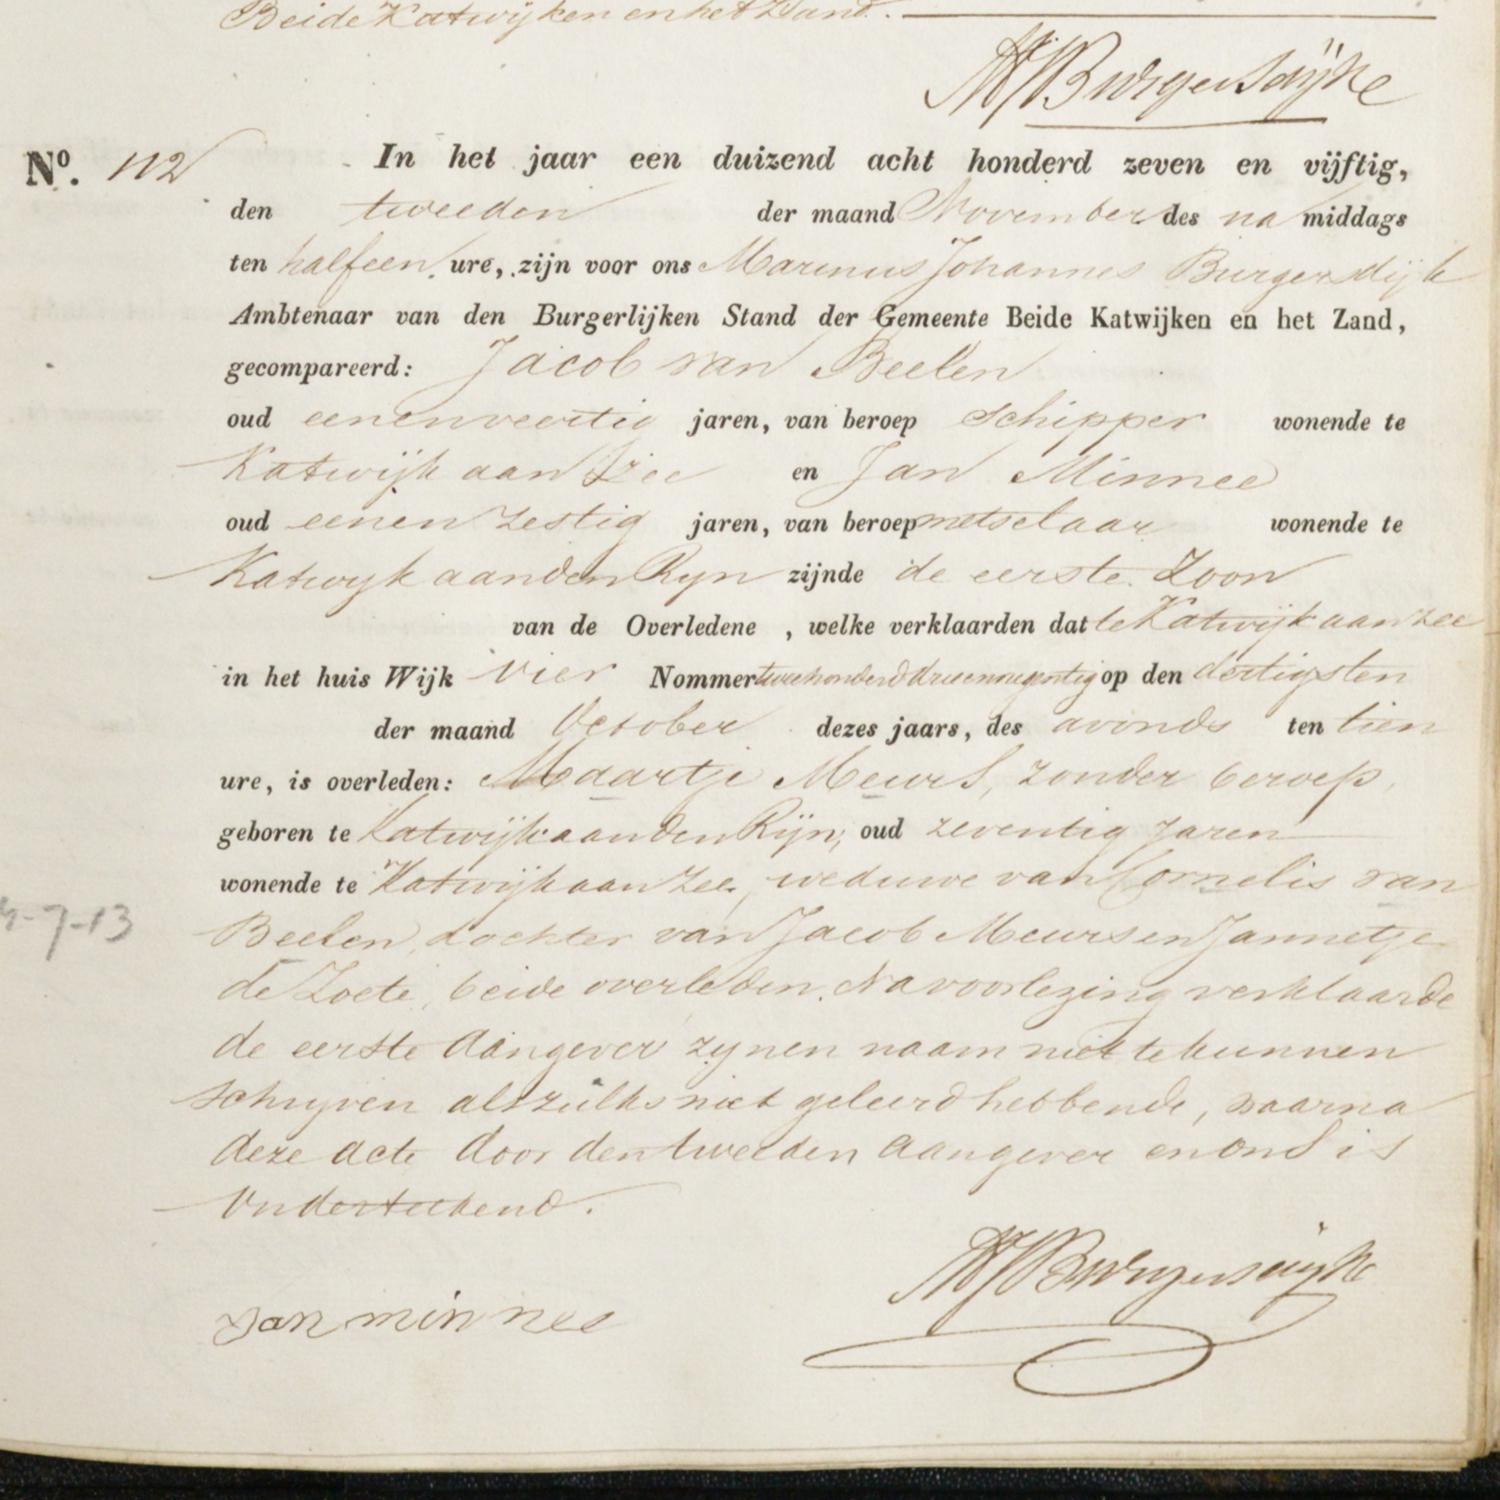 Beide Katwijken en het Zand.
MJBurgersdijk
No. 112 In het jaar een duizend acht honderd zeven en vijftig,
den tweeden der maand November des na middags
ten half een ure, zijn voor ons Marinus Johannes Burgersdijk
Ambtenaar van den Burgerlijken Stand der Gemeente Beide Katwijken en het Zand,
gecompareerd: Jacob van Beelen
oud eenenveertig jaren, van beroep schipper wonende te
Katwijk aan Zee en Jan Minnee
oud eenen zestig jaren, van beroep metselaar wonende te
Katwyk aan den Ryn zijnde de eerste Zoon
van de Overledene , welke verklaarden dat te Katwijk aan zee
in het huis Wijk vier Nommer tweehonderd drieennegentig op den dertigsten
der maand October dezes jaars, des avonds ten tien
ure, is overleden: Maartje Meurs, zonder beroep,
geboren te Katwijk aan den Rijn, oud zeventig jaren
wonende te Katwijk aan Zee, weduwe van Cornelis van
Beelen, dochter van Jacob Meurs en Jannetje
de Zoete, beide overleden. Na voorlezing verklaarde
de eerste Aangever zynen naam niet te kunnen
schryven als zulks niet geleerd hebbende, waarna
deze acte door den tweeden Aangever en ons is
Onderteekend.
MJBurgersdijk
Jan minnee
-7-13